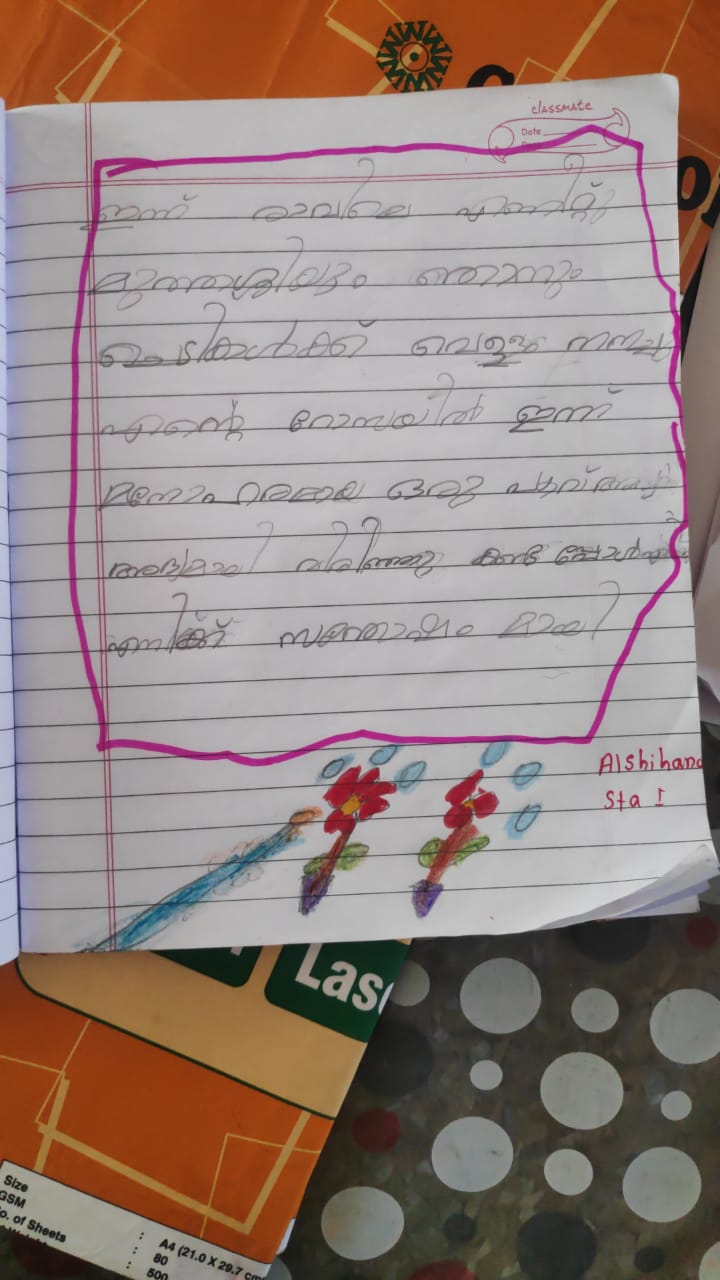 classmate
Date
ഇന്ന് രാവിലെ എണീറ്റു
മുത്തശ്ശിയും ഞാനും
ചെടികൾക്ക് വെള്ളം നനച്ചു
എന്റെ റോസയിൽ ഇന്ന്
മനോഹരമായ ഒരു പൂവ്
ആദ്യമായി വിരിഞ്ഞു കണ്ട
എനിക്ക് സന്തോഷം മായി
Alshihana
Std I
Lase
Size
GSM
No. of Sheets
: A4 (21.0 X 29.7 cm
: 80
: 500